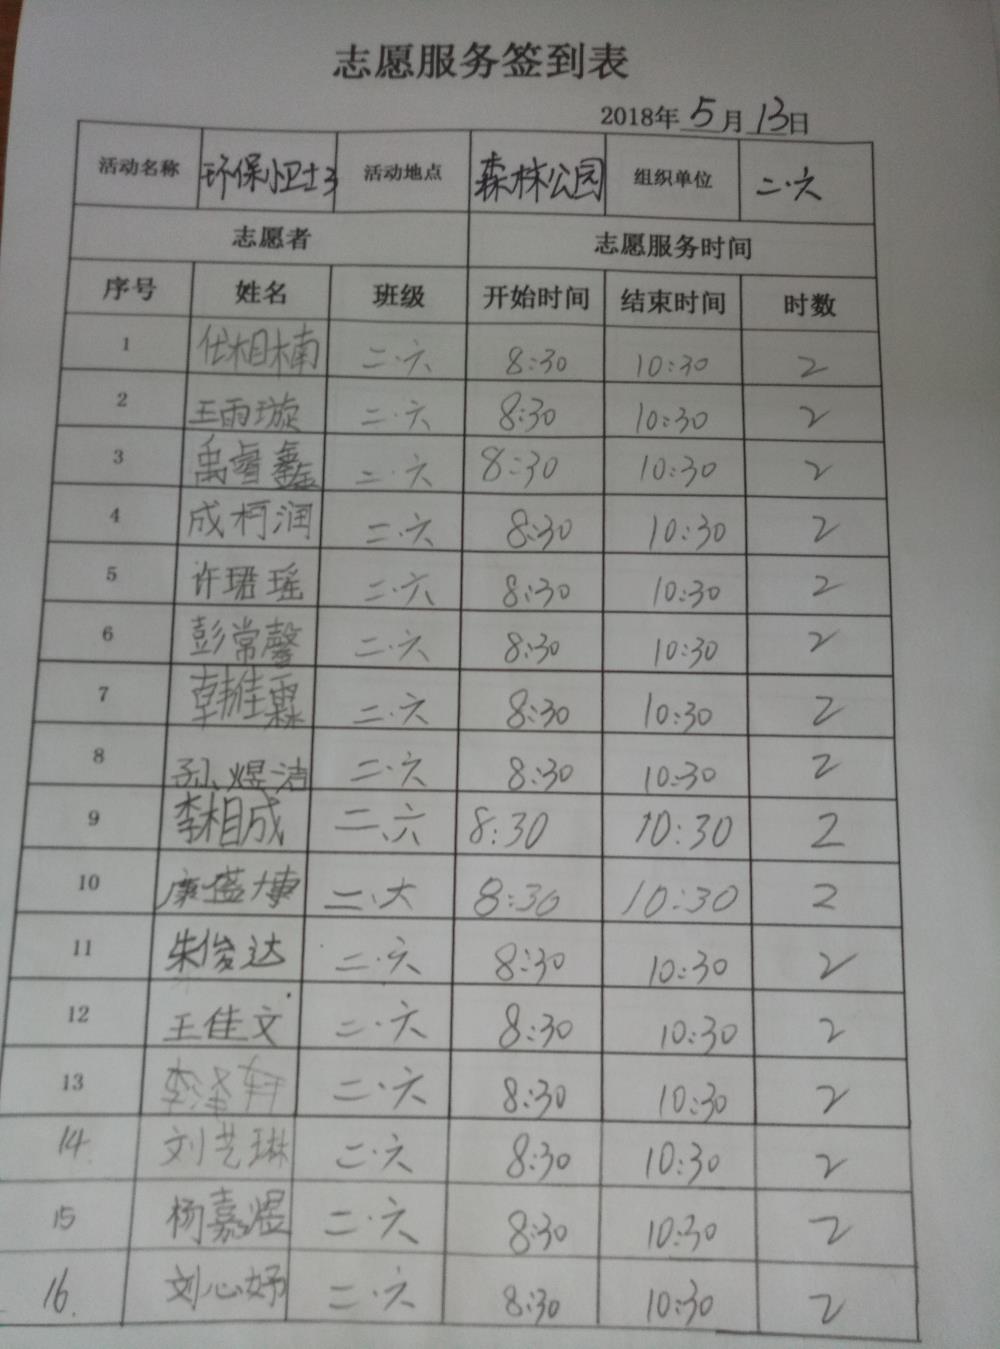 志愿服务签到表
2018年5月13日
活动名称 环保小卫士 活动地点 森林公园 组织单位 二·六
志愿者 志愿服务时间
序号 姓名 班级 开始时间 结束时间 时数
1 任相楠 二·六 8:30 10:30 2
2 王雨璇 二·六 8:30 10:30 2
3 禹睿鑫 二·六 8:30 10:30 2
4 成柯润 二·六 8:30 10:30 2
5 许珺瑶 二·六 8:30 10:30 2
6 彭常馨 二·六 8:30 10:30 2
7 韩佳霖 二·六 8:30 10:30 2
8 孙煜洁 二·六 8:30 10:30 2
9 李相成 二、六 8:30 10:30 2
10 二.六 8:30 10:30 2
11 朱俊达 二·六 8:30 10:30 2
12 王佳文 二·六 8:30 10:30 2
13 李泽轩 二·六 8:30 10:30 2
14 刘艺琳 二·六 8:30 10:30 2
15 杨嘉煜 二·六 8:30 10:30 2
16. 刘心妤 二·六 8:30 10:30 2